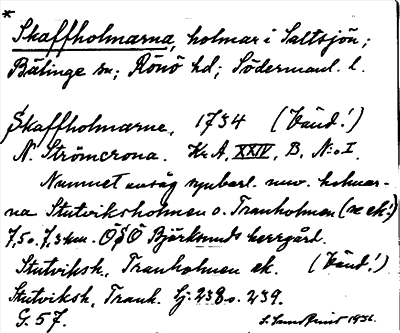 *
Skaffholmarna, holmar i Saltsjön;
Bälinge sn; Rönö hd; Södermanl. l.
Skaffholmarne, 1734 (Vänd!)
N. Strömcrona. Kr. A, XXIV, B, N:o I.
Namnet avsåg synbarl. nuv. holmar-
na Stutviksholmen o. Tranholmen (se ek!)
7,5 o. 7,3 km. ÖSÖ Björksunds herrgård.
Stutviksh, Tranholmen ek. (Vänd!)
Stutviksh, Tranh. Lj. 238 o. 239.
G. 57. 1936.